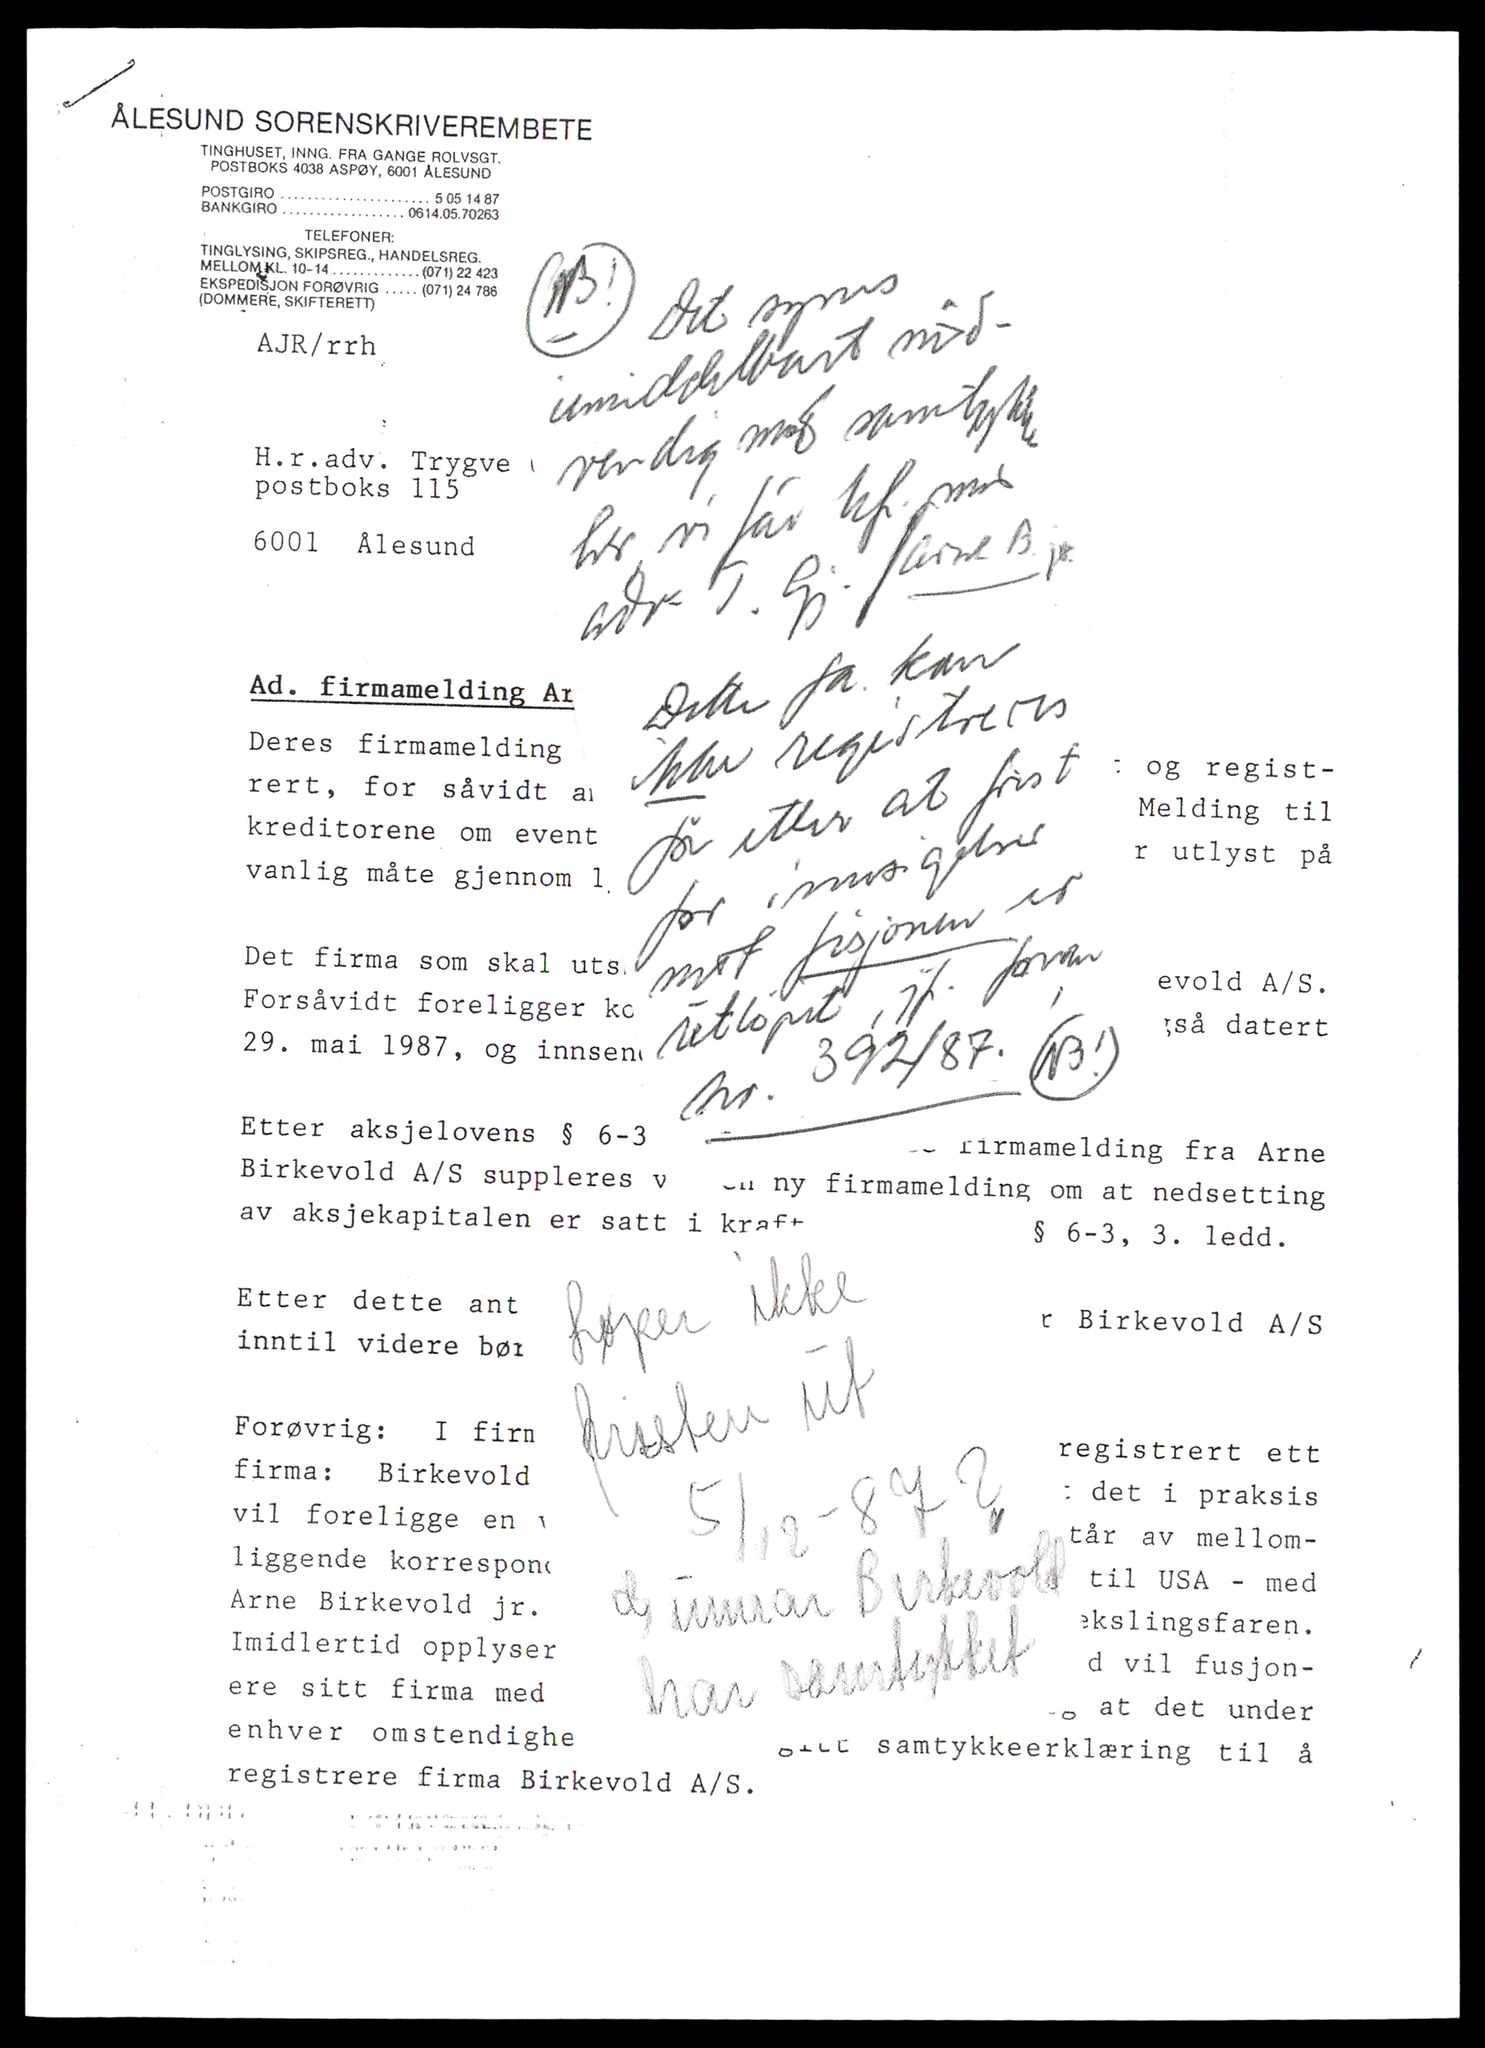 ÅLESUND SORENSKRIVEREMBETE
TINGHUSET, INNG. FRA GANGE ROLVSGT.
POSTBOKS 4038 ASPØY, 6001 ÅLESUND
POSTGIRO ..................... 5 05 14 87
BANKGIRO .................. 0614.05.70263
TELEFONER:
TINGLYSING, SKIPSREG., HANDELSREG.
MELLOM KL. 10-14 ............. (071) 22 423
EKSPEDISJON FORØVRIG ..... (071) 24 786
(DOMMERE, SKIFTERETT)
AJR/rrh
H.r.adv. Trygve
postboks 115
6001 Ålesund
NB! Det synes
umiddelbart nød-
vendig med samtykke
her, vi får kf. med
adv. T. Gj. / Arne B. jr.
Dette fa. kan
ikke registreres
før etter at frist
for innsigelser
mot fisjonen er
utløpt, jf. foran
nr. 392/87. NB!
Ad. firmamelding Ar
Deres firmamelding
rert, for såvidt og regist-
kreditorene om event Melding til
vanlig måte gjennom utlyst på
Det firma som skal uts evold A/S.
Forsåvidt foreligger koså datert
29. mai 1987, og innsen
Etter aksjelovens § 6-3 firmamelding fra Arne
Birkevold A/S suppleres v ny firmamelding om at nedsetting
av aksjekapitalen er satt i kraft § 6-3, 3. ledd.
Etter dette ant r Birkevold A/S
inntil videre bør
løper ikke
fristen ut
5/12-87?
Gunnar Birkevold
har samtykket
Forøvrig: I firm registrert ett
firma: Birkevold det i praksis
vil foreligge en tår av mellom-
liggende korrespond til USA - med
Arne Birkevold jr. ekslingsfaren.
Imidlertid opplyser d vil fusjon-
ere sitt firma med at det under
enhver omstendighe samtykkeerklæring til å
registrere firma Birkevold A/S.